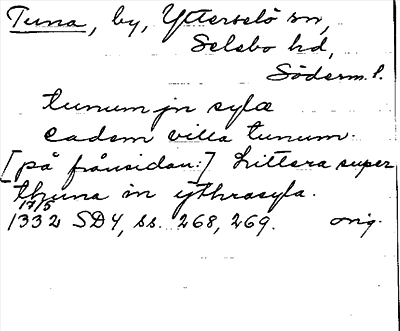 Tuna, by, Ytterselö sn,
Selebo hd,
Söderm. l.
tunum jn sylæ
eadem villa tunum.
[på frånsidan:] Littera super
thuna in ythrasyla.
17/5
1332 SD4, ss. 268, 269. orig.